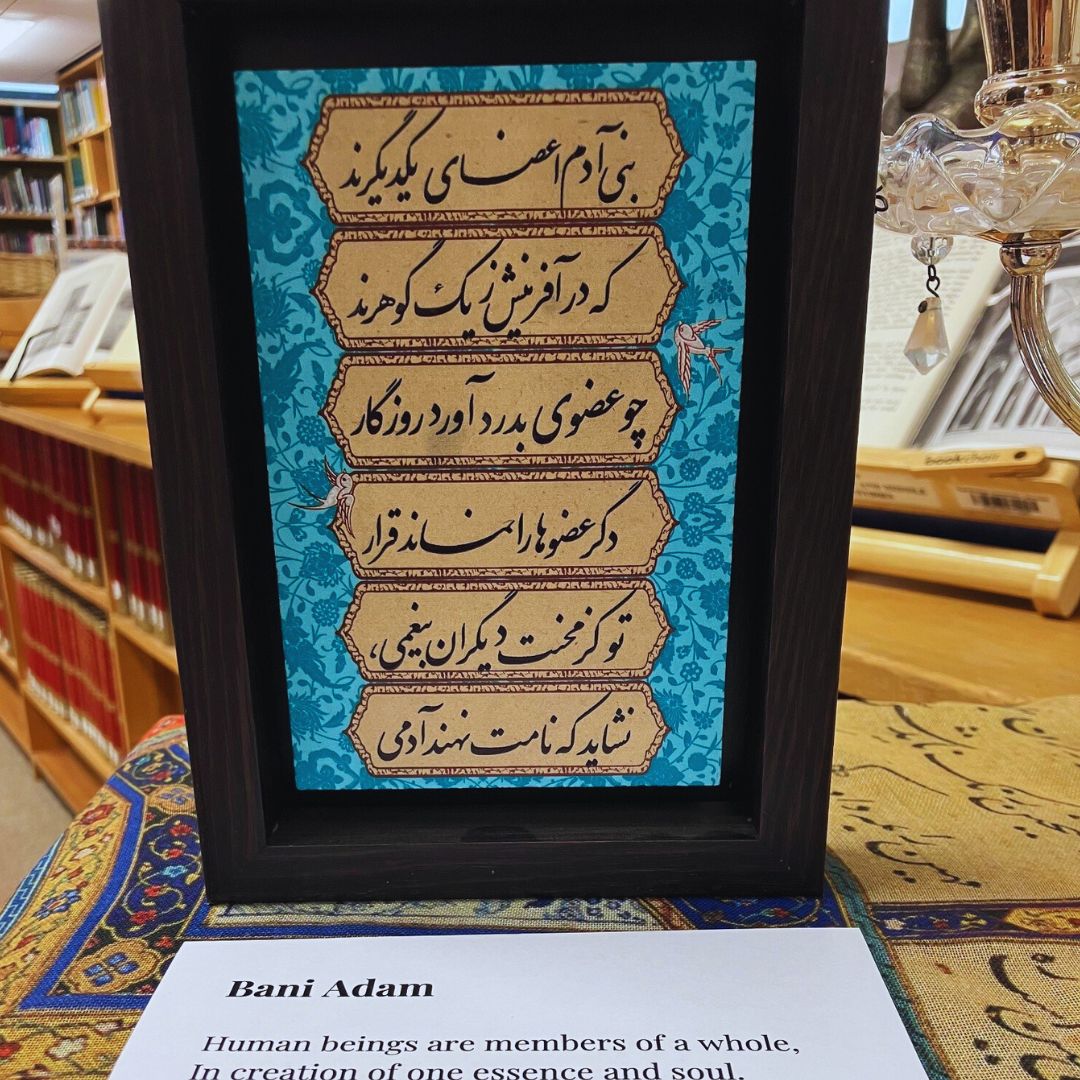 بنی آدم اعضای یکدیگرند
که در آفرینش ز یک گوهرند
چو عضوی بدرد آورد روزگار
دگر عضوها را نماند قرار
تو کز محنت دیگران بیغمی،
نشاید که نامت نهند آدمی
bookchair
Bani Adam
Human beings are members of a whole,
In creation of one essence and soul.